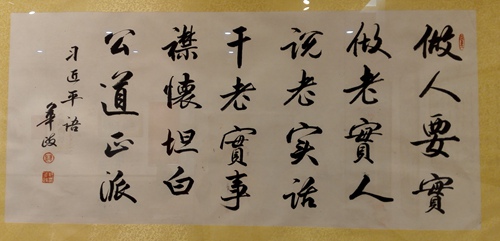 做人要實
做老實人
说老实话
干老實事
襟懷坦白
公道正派
习近平语
華